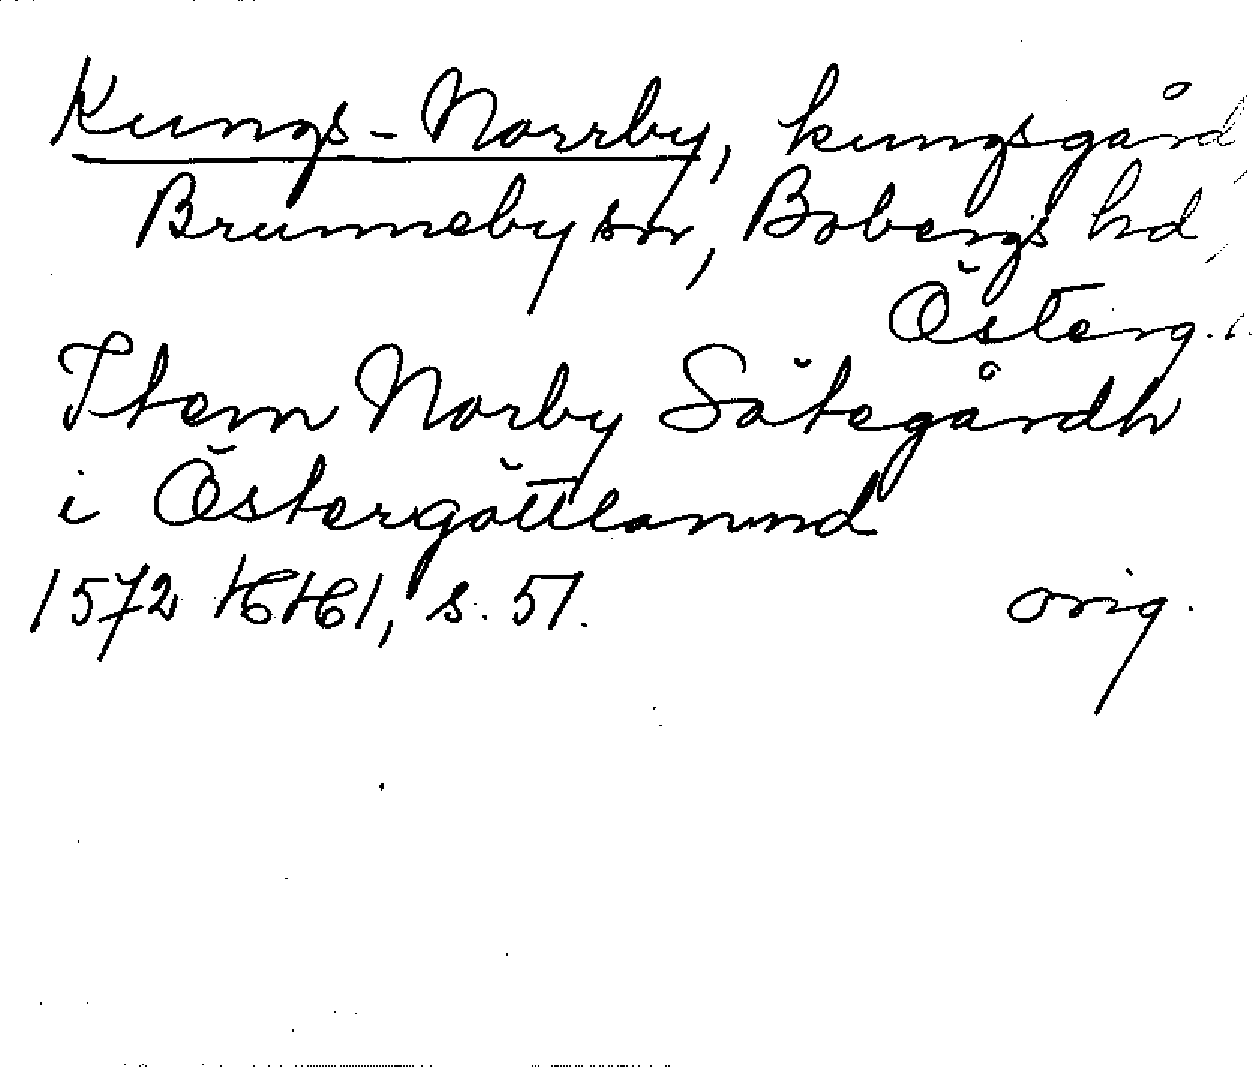 Kungs-Norrby, kungsgård,
Brunneby sn, Bobergs hd,
Österg.
Item Norby Sätegårdh
i Östergöttlannd
1572 HH1, s. 51.
orig.